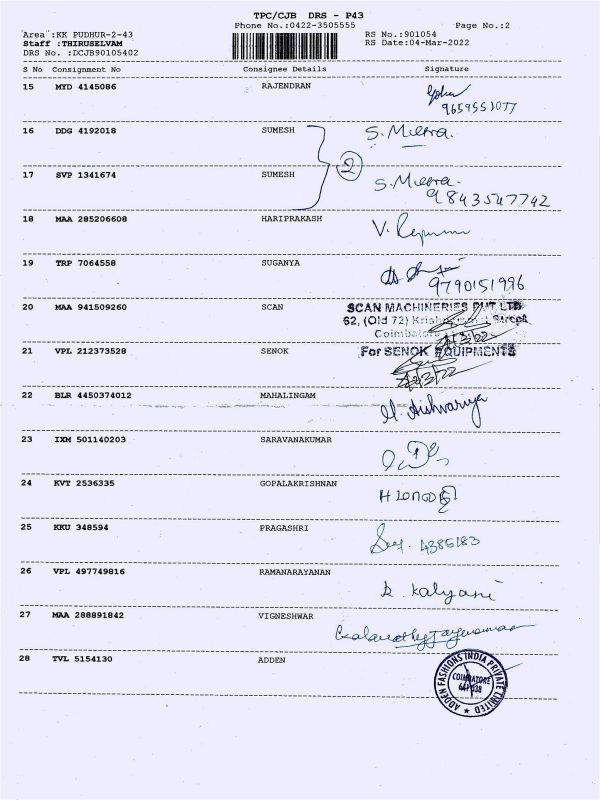 TPC/CJB DRS - P43
Phone No.:0422-3505555 Page No.:2
Area :KK PUDHUR-2-43 RS No.:901054
Staff :THIRUSELVAM RS Date:04-Mar-2022
DRS No. :DCJB90105402
S No Consignment No Consignee Details Signature
15 MYD 4145086 RAJENDRAN
9659551077
16 DDG 4192018 SUMESH S. Meera.
2
17 SVP 1341674 SUMESH S. Meera.
9843547742
18 MAA 285206608 HARIPRAKASH V.
19 TRP 7064558 SUGANYA
9790151996
20 MAA 941509260 SCAN SCAN MACHINERIES PVT LTD
62, (Old 72) Street
Coimbatore
21 VPL 212373528 SENOK For SENOK EQUIPMENTS
22 BLR 4450374012 MAHALINGAM M. Aishvariya
23 IXM 501140203 SARAVANAKUMAR
24 KVT 2536335 GOPALAKRISHNAN
25 KKU 348594 PRAGASHRI 4385183
26 VPL 497749816 RAMANARAYANAN R. Kalyani
27 MAA 288891842 VIGNESHWAR
28 TVL 5154130 ADDEN
ADDEN FASHIONS INDIA PRIVATE LIMITED
COIMBATORE